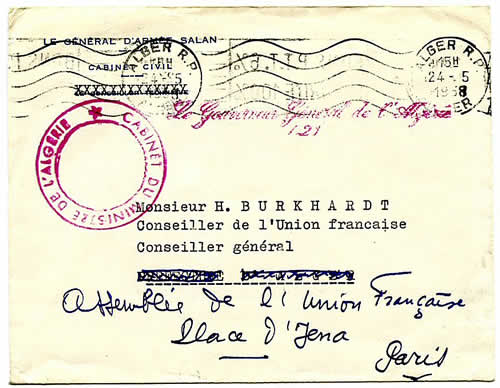 LE GÉNÉRAL D'ARMÉE SALAN
CABINET CIVIL
XXXXXXXXXXXXXXXX
ALGER R.P.
24 -5
ALGER R.P.
24 - 5
1958
ALGER
P.T.T.
Le Gouverneur Général de l'Algérie
CABINET DU MINISTRE DE L'ALGÉRIE
Monsieur H. BURKHARDT
Conseiller de l'Union francaise
Conseiller général
Assemblée de l'Union Française
Place d'Jena
Paris